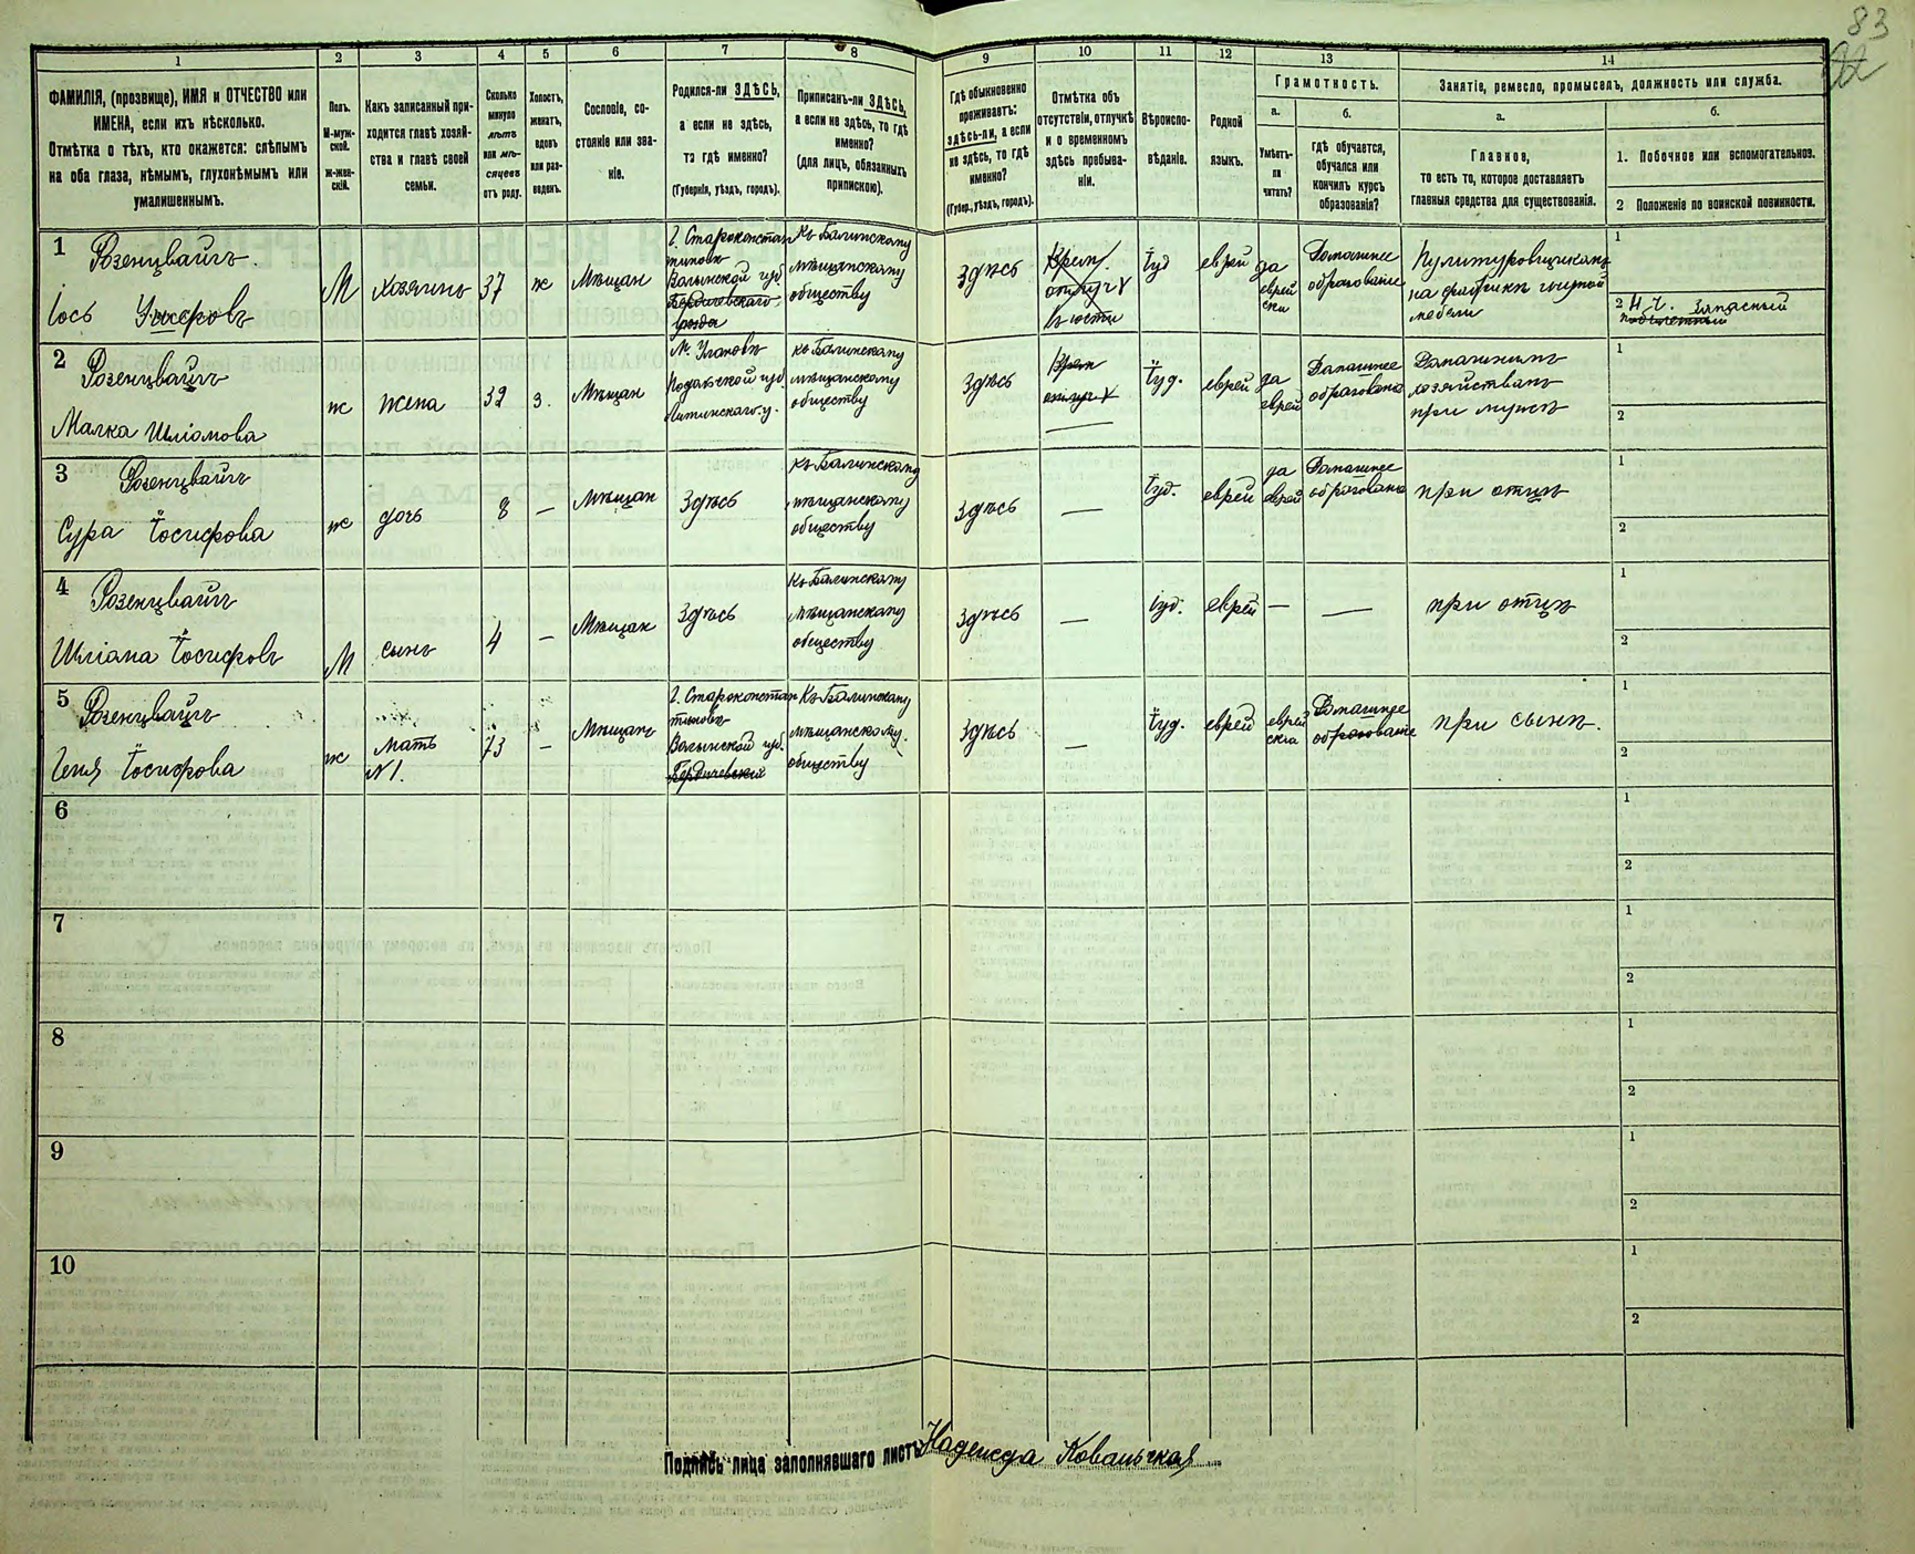 83
1 2 3 4 5 6 7 8 9 10 11 12 13 14
ФАМИЛІЯ, (прозвище), ИМЯ и ОТЧЕСТВО или
ИМЕНА, если ихъ нѣсколько.
Отмѣтка о тѣхъ, кто окажется: слѣпымъ
на оба глаза, нѣмымъ, глухонѣмымъ или
умалишеннымъ.
Полъ.
М-муж-
ской.
Ж-жен-
скій.
Какъ записанный при-
ходится главѣ хозяй-
ства и главѣ своей
семьи.
Сколько
минуло
лѣтъ
или мѣ-
сяцевъ
отъ роду.
Холостъ,
женатъ,
вдовъ
или раз-
веденъ.
Сословіе, со-
стояніе или зва-
ніе.
Родился-ли ЗДѢСЬ,
а если не здѣсь,
то гдѣ именно?
(Губернія, уѣздъ, городъ).
Приписанъ-ли ЗДѢСЬ,
а если не здѣсь, то гдѣ
именно?
(для лицъ, обязанныхъ
припискою).
Гдѣ обыкновенно
проживаетъ:
здѣсь-ли, а если
не здѣсь, то гдѣ
именно?
(Губер., уѣздъ, городъ).
Отмѣтка объ
отсутствіи, отлучкѣ
и о временномъ
здѣсь пребыва-
ніи.
Вѣроиспо-
вѣданіе.
Родной
языкъ.
Грамотность.
а.
Умѣетъ-
ли
читать?
б.
гдѣ обучается,
обучался или
кончилъ курсъ
образованія?
Занятіе, ремесло, промыселъ, должность или служба.
а.
Главное,
то есть то, которое доставляетъ
главныя средства для существованія.
б.
1. Побочное или вспомогательное.
2 Положеніе по воинской повинности.
1
Розенцвайгъ
Іось
М
хозяинъ
37
ж
Мѣщан
г. Староконстан
тиновъ
Волынской губ.
Бердичевскаго
уѣзда
Къ Балинскому
мѣщанскому
обществу
Здѣсь
Врем.
отлуч
іуд
еврей
да
еврей
ски
Домашнее
образование
Пулитуровщикомъ
на фабрикѣ гнутой
мебели
1
2
запасный
2
Розенцвайгъ
Малка Шліомова
ж
жена
32
з.
Мѣщан
м. Улановъ
Подольской губ
Литинскаго у.
къ Балинскому
мѣщанскому
обществу
Здѣсь
Врем
отлуч
іуд.
еврей
да
еврей
Домашнее
образование
Домашнимъ
хозяйствомъ
при мужѣ
1
2
3
Розенцвайгъ
Сура Іосифова
ж
дочь
8
—
Мѣщан
Здѣсь
къ Балинскому
мѣщанскому
обществу
Здѣсь
—
іуд.
еврей
да
еврей
Домашнее
образование
при отцѣ
1
2
4
Розенцвайгъ
Шліома Іосифовъ
М
сынъ
4
—
Мѣщан
Здѣсь
Къ Балинскому
мѣщанскому
обществу
Здѣсь
—
іуд.
еврей
—
—
при отцѣ
1
2
5
Розенцвайгъ
Геня Іосифова
ж
Мать
N 1.
73
—
Мѣщанъ
г. Староконстан
тиновъ
Волынской губ.
Бердичевскій
Къ Балинскому
мѣщанскому
обществу
Здѣсь
—
іуд.
еврей
еврей
ская
Домашнее
образование
при сынѣ.
1
2
6
1
2
7
1
2
8
1
2
9
1
2
10
1
2
Подпись лица заполнявшаго листъ Надежда Ковальская